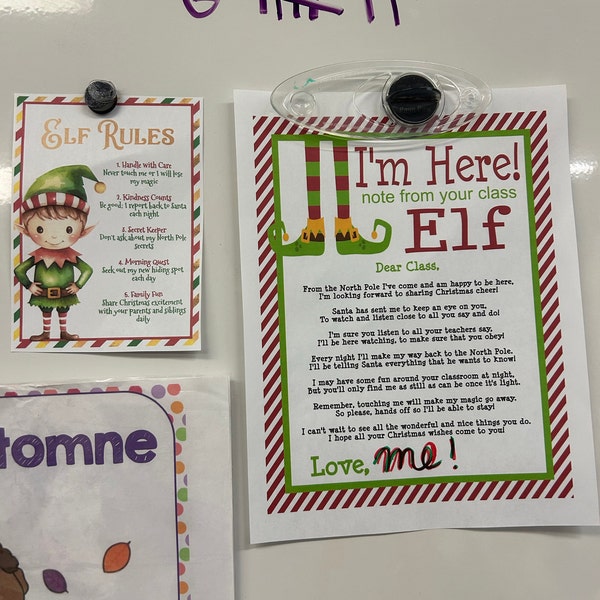 Elf Rules
1. Handle with Care
Never touch me or I will lose
my magic
2. Kindness Counts
Be good: I report back to Santa
each night
3. Secret Keeper
Don't ask about my North Pole
secrets
4. Morning Quest
Seek out my new hiding spot
each day
5. Family Fun
Share Christmas excitement
with your parents and siblings
daily
I'm Here!
note from your class
Elf
Dear Class,
From the North Pole I've come and am happy to be here,
I'm looking forward to sharing Christmas cheer!
Santa has sent me to keep an eye on you,
To watch and listen close to all you say and do!
I'm sure you listen to all your teachers say,
I'll be here watching, to make sure that you obey!
Every night I'll make my way back to the North Pole.
I'll be telling Santa everything that he wants to know!
I may have some fun around your classroom at night,
But you'll only find me as still as can be once it's light.
Remember, touching me will make my magic go away.
So please, hands off so I'll be able to stay!
I can't wait to see all the wonderful and nice things you do.
I hope all your Christmas wishes come to you!
Love, me!
tomne